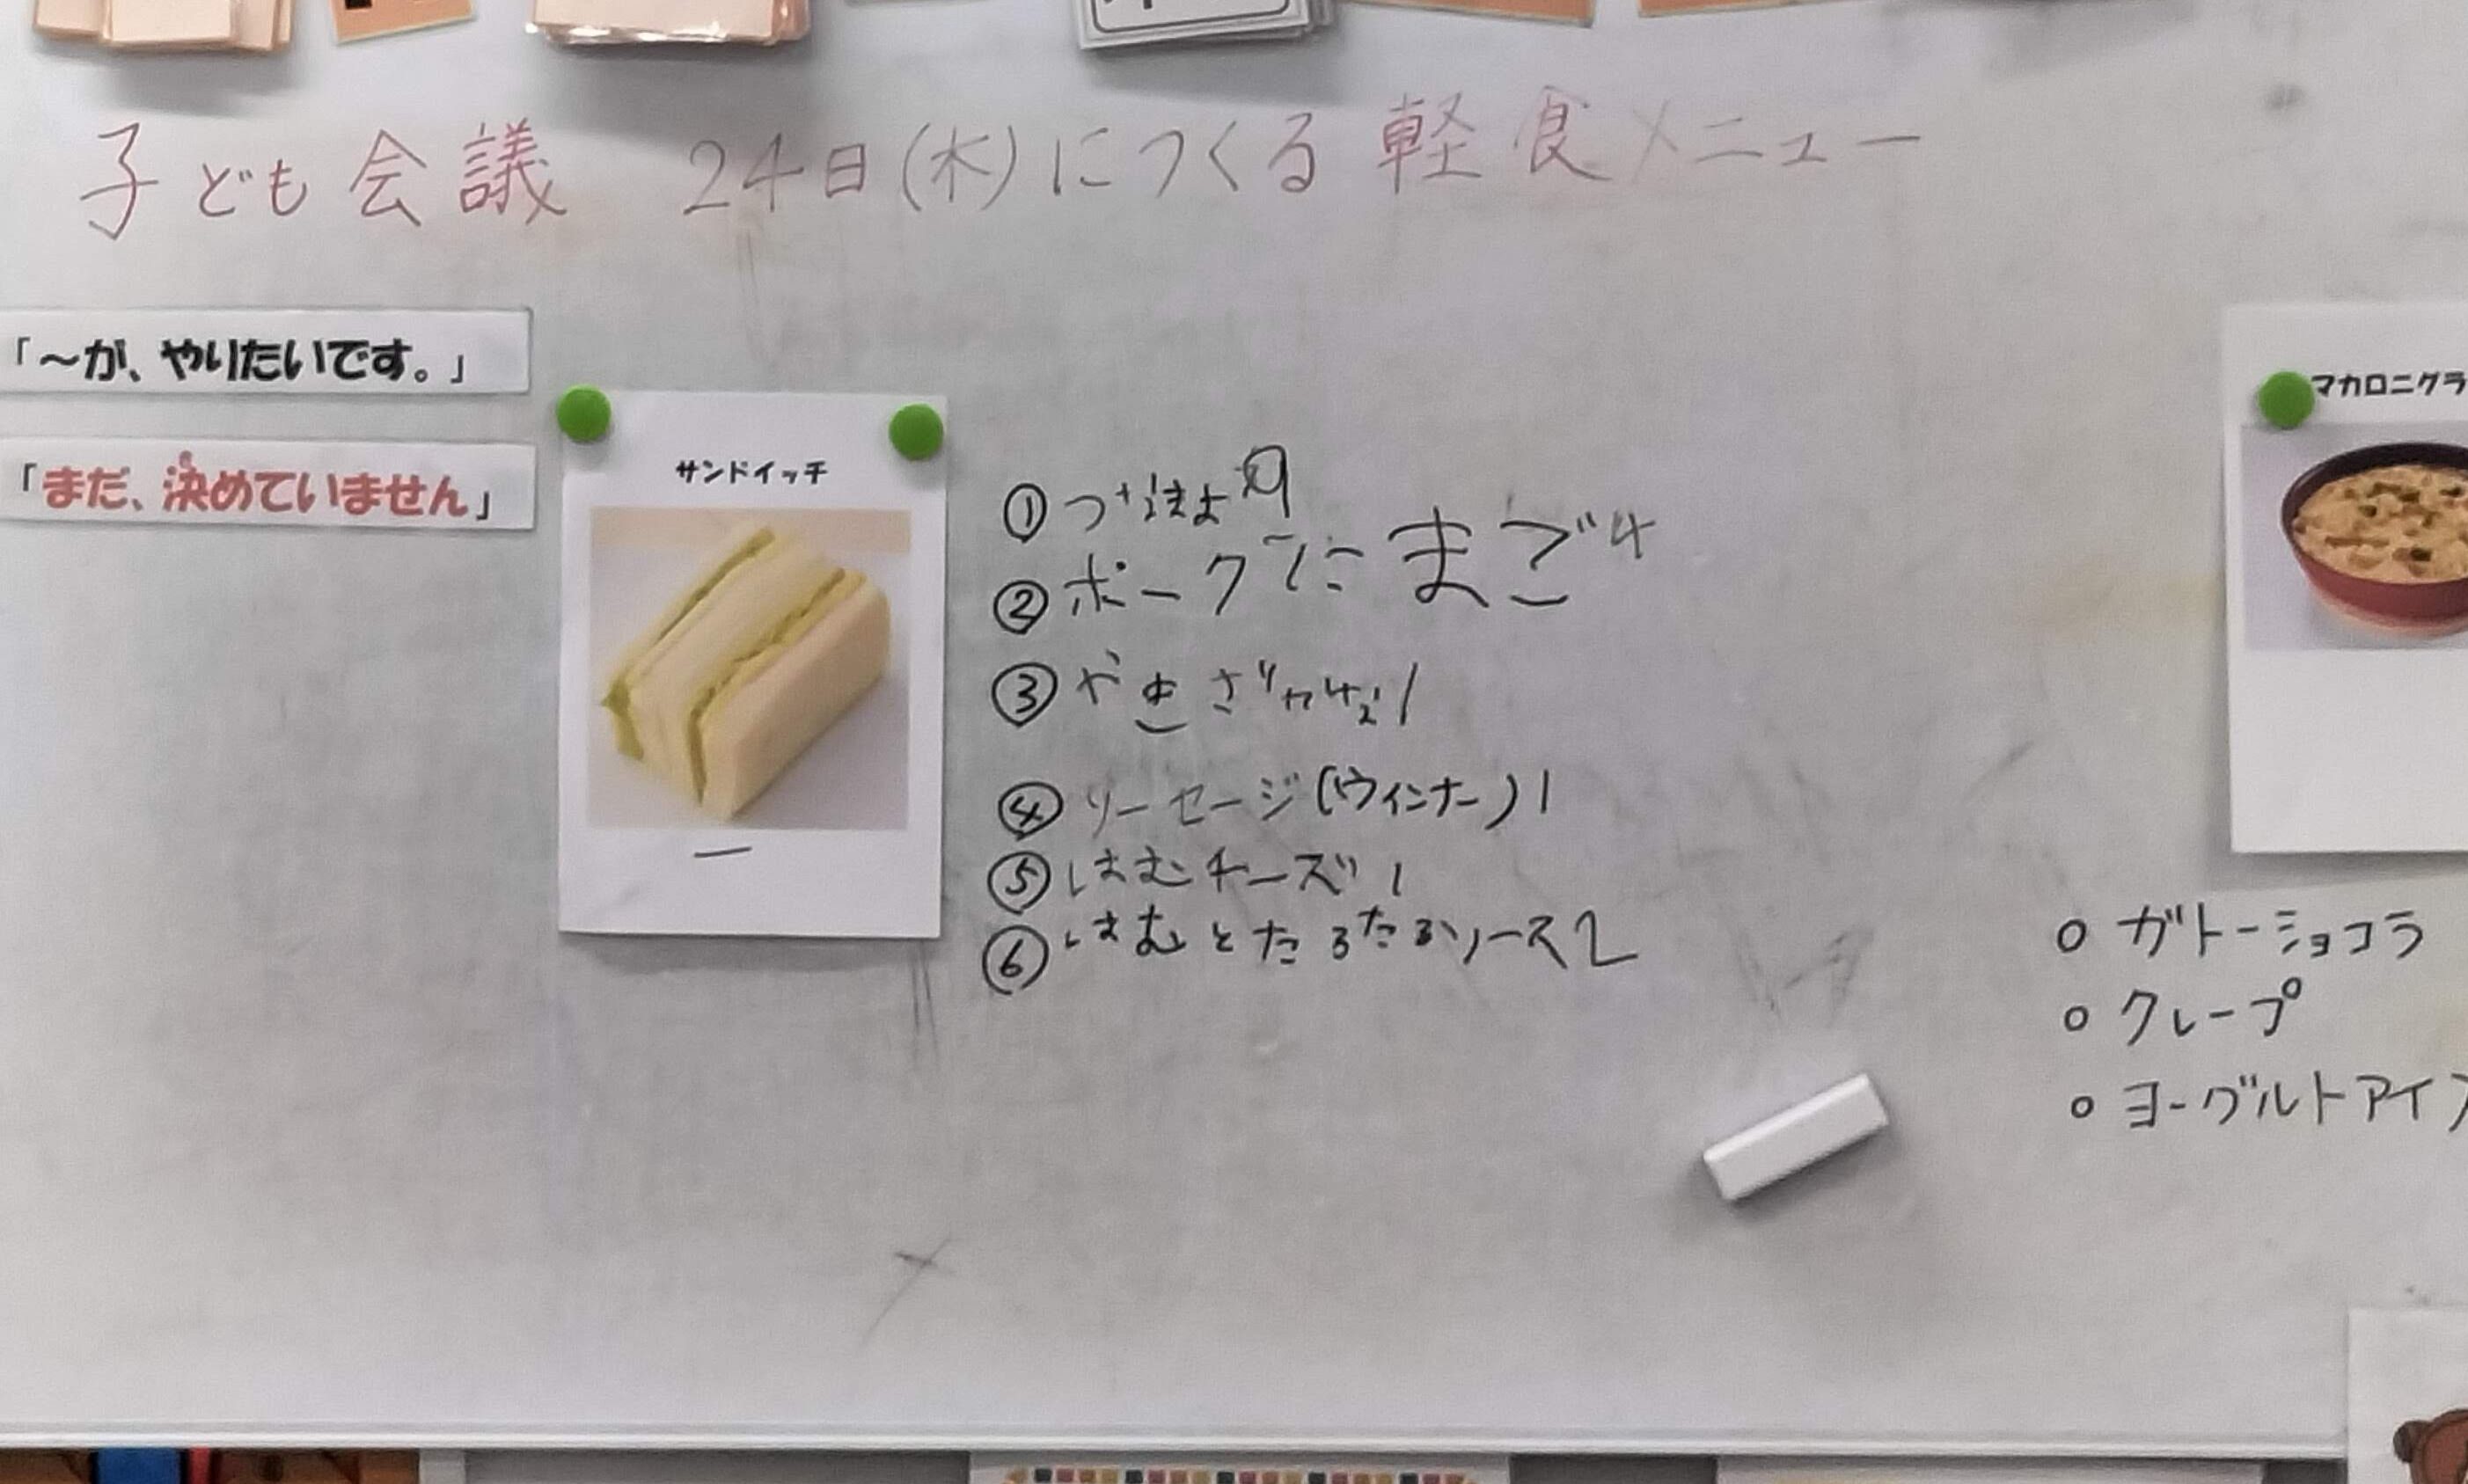 子ども会議 24日(木)につくる軽食メニュー
「～が、やりたいです。」
「まだ、決めていません」
サンドイッチ
① つなまよ
② ポークたまご4
③ やきざかな1
④ ソーセージ(ウインナー)1
⑤ はむチーズ1
⑥ はむとたるたるソース2
マカロニグラ
○ ガトーショコラ
○ クレープ
○ ヨーグルトアイ